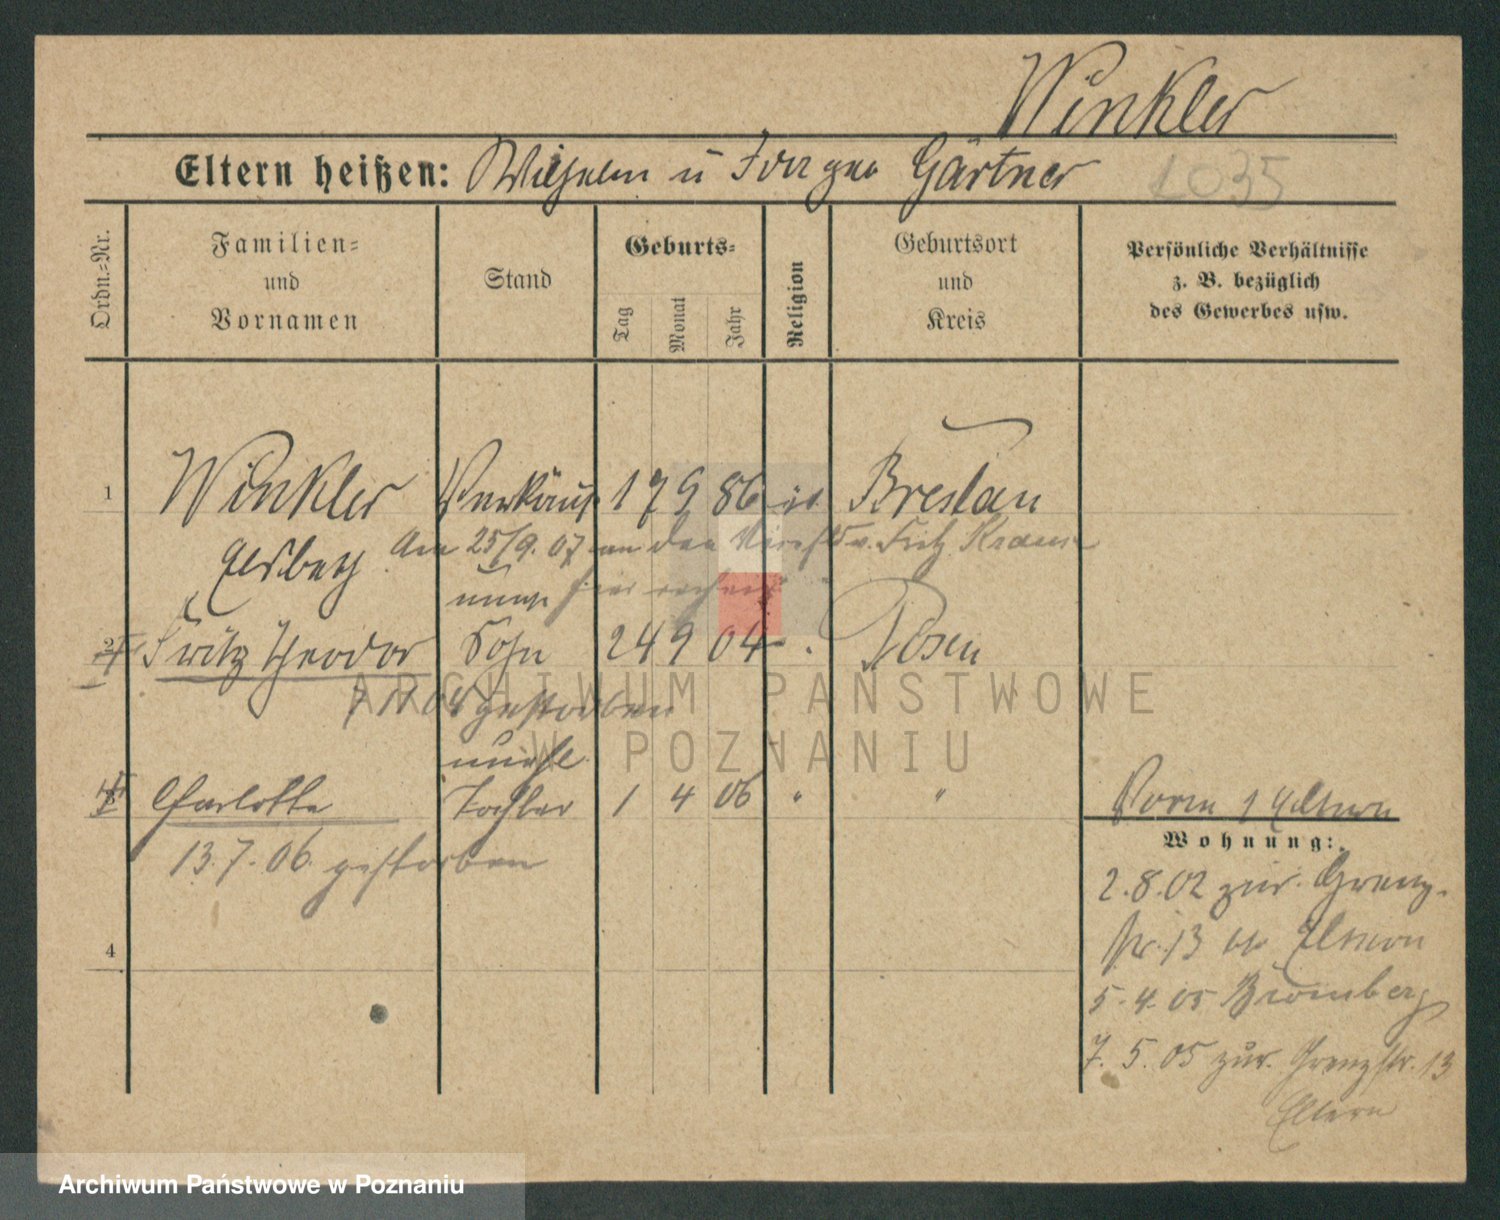 Winkler
Eltern heißen: Wilhelm u Gärtner
1035
Ordn.-Nr.
Familien-
und
Vornamen
Stand
Geburts-
Tag
Monat
Jahr
Religion
Geburtsort
und
Kreis
Persönliche Verhältnisse
z. B. bezüglich
des Gewerbes usw.
1 Winkler Verkäuf 17 9 86 Breslau
Elsbeth Am 25/9. 07 an den v. Fritz Krause
unehe hier
2 Fritz Theodor Sohn 24 9 04 Posen
7 11 04 gestorben
unehe
3 Charlotte Tochter 1 4 06 " "
13.7.06. gestorben
4
Wohnung:
2.8.02 zur. Grenz-
str. 13 Eltern
5.4.05 Bromberg
7.5.05 zur. Grenzstr. 13
Eltern
ARCHIWUM PAŃSTWOWE
W POZNANIU
Archiwum Państwowe w Poznaniu